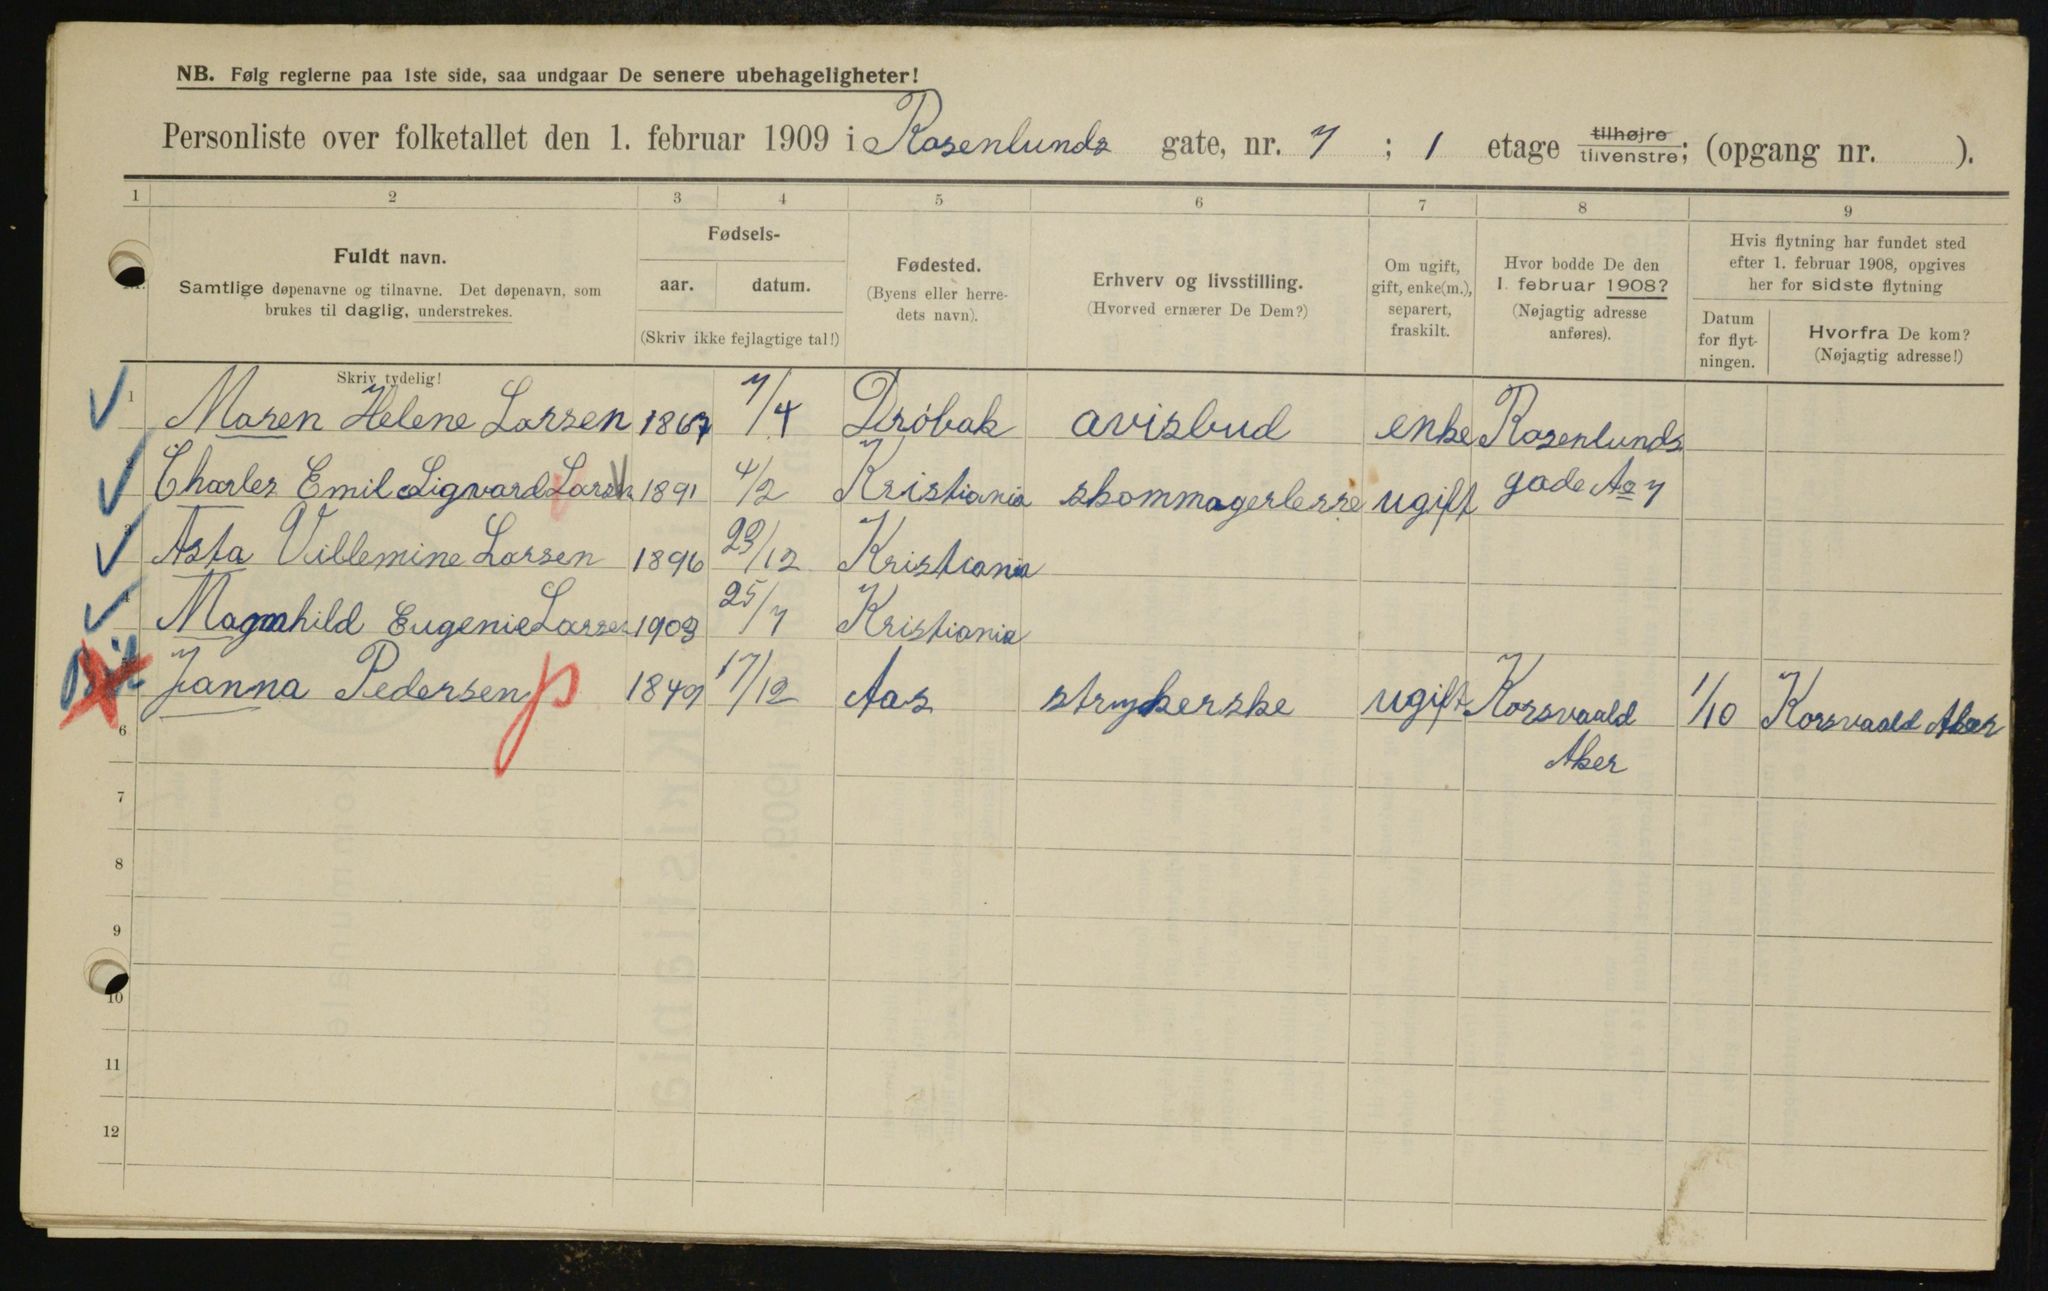 NB. Følg reglerne paa 1ste side, saa undgaar De senere ubehageligheter!
Personliste over folketallet den 1. februar 1909 i Rosenlunds gate, nr. 7 ; 1 etage tilhøjre tilvenstre; (opgang nr. ).
1 2 3 4 5 6 7 8 9
Fuldt navn.
Samtlige døpenavne og tilnavne. Det døpenavn, som
brukes til daglig, understrekes.
Fødsels-
aar. datum.
(Skriv ikke fejlagtige tal!)
Fødested.
(Byens eller herre-
dets navn).
Erhverv og livsstilling.
(Hvorved ernærer De Dem?)
Om ugift,
gift, enke(m.),
separert,
fraskilt.
Hvor bodde De den
1. februar 1908?
(Nøjagtig adresse
anføres).
Hvis flytning har fundet sted
efter 1. februar 1908, opgives
her for sidste flytning
Datum
for flyt-
ningen.
Hvorfra De kom?
(Nøjagtig adresse!)
Skriv tydelig!
1 Maren Helene Larsen 1867 7/4 Drøbak avisbud enke Rosenlunds
Charles Emil Sigvard Larsen 1891 4/2 Kristiania skommagerlerre ugift gade No 7
3 Asta Villemine Larsen 1896 23/12 Kristiania
4 Magnhild Eugenie Larsen 1903 25/7 Kristiania
Janna Pedersen 1849 17/12 Aas strykerske ugift Korsvaald 1/10 Korsvaald Aker
Aker
6
7
8
9
10
11
12